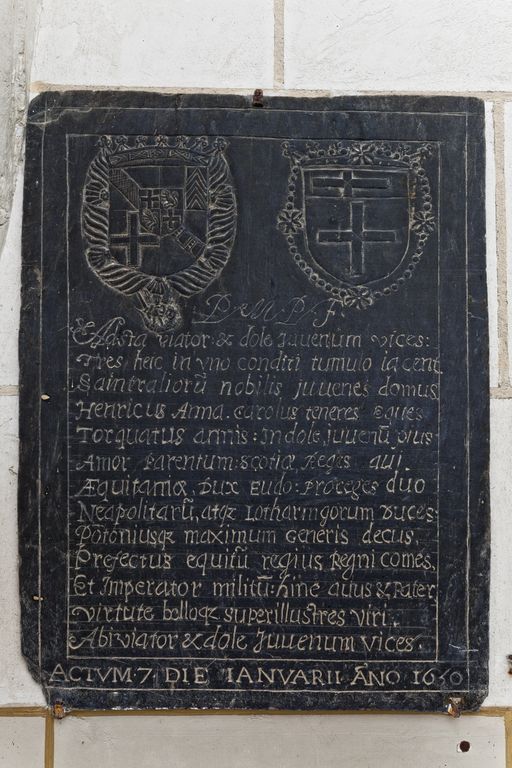 D M P F
Hasta viator & dole Juvenum vices:
Tres heic in vno conditi tumulo iacent
Saintraliorũ nobilis juvenes domus
Henricus Anna. carolus teneres Eques
Torquatus armis: Indole juvenũ pius
Amor Parentum: scotiæ Reges aui
Æquitaniæ Dux Eudo: Proceges duo
Neapolitarũ, atqz Lotharingorum Duces:
Potoniusqz maximum Generis decus,
Prefectus equitũ regius Regni comes,
Et Imperator militũ: hinc auus & Pater
virtute belloqz superillustres viri.
Abi viator & dole Juvenum vices.
ACTVM 7. DIE IANVARII ÃNO 1650